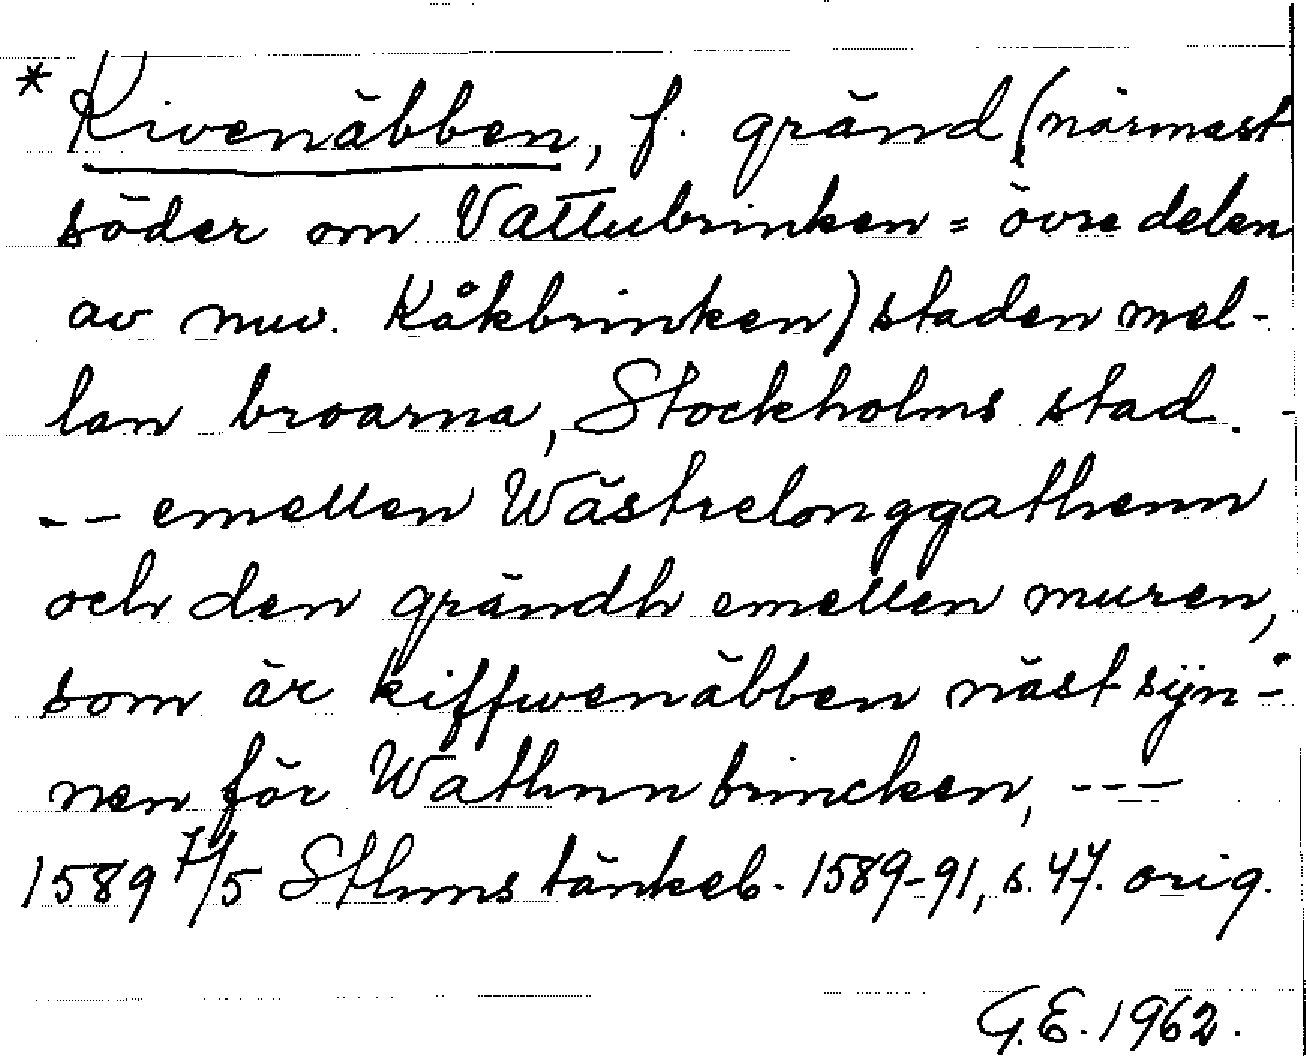 * Kivenäbben, f. gränd (närmast
söder om Vattubrinken = övre delen
av nuv. Kåkbrinken) staden mel-
lan broarna, Stockholms stad. -
- - emellen Wästrelonggathenn
och den grändh emellen muren,
som är kiffwenäbben näst sÿn-
nen för Wathnnbrincken, ---
1589 7/5 Sthms tänkeb. 1589-91, s. 47. orig.
G.E. 1962.